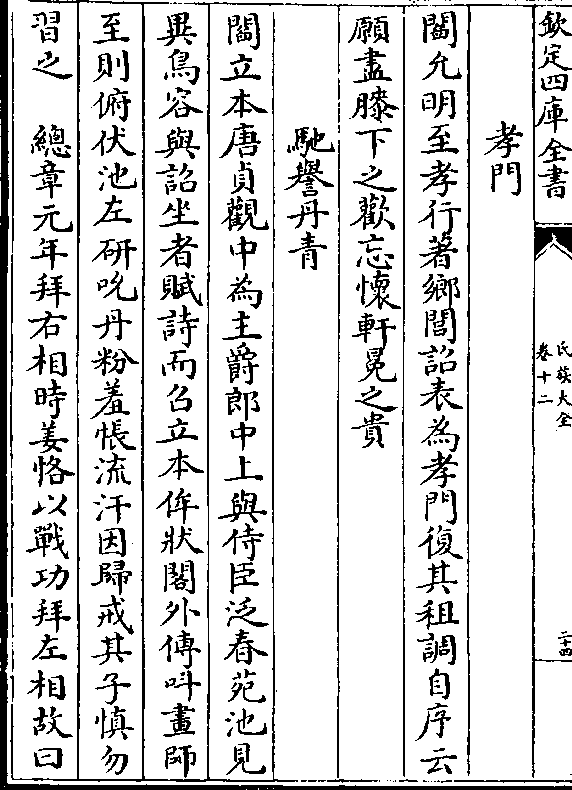 欽定四庫全書
氏族大全
卷十二
二十四
孝門
閻允明至孝行著鄉閭詔表為孝門復其租調自序云
願盡膝下之歡忘懷軒冕之貴
馳譽丹青
閻立本唐貞觀中為主爵郎中上與侍臣泛春苑池見
異鳥容與詔坐者賦詩而召立本侔狀閣外傳呌畫師
至則俯伏池左研吮丹粉羞悵流汗因歸戒其子慎勿
習之 總章元年拜右相時姜恪以戰功拜左相故曰